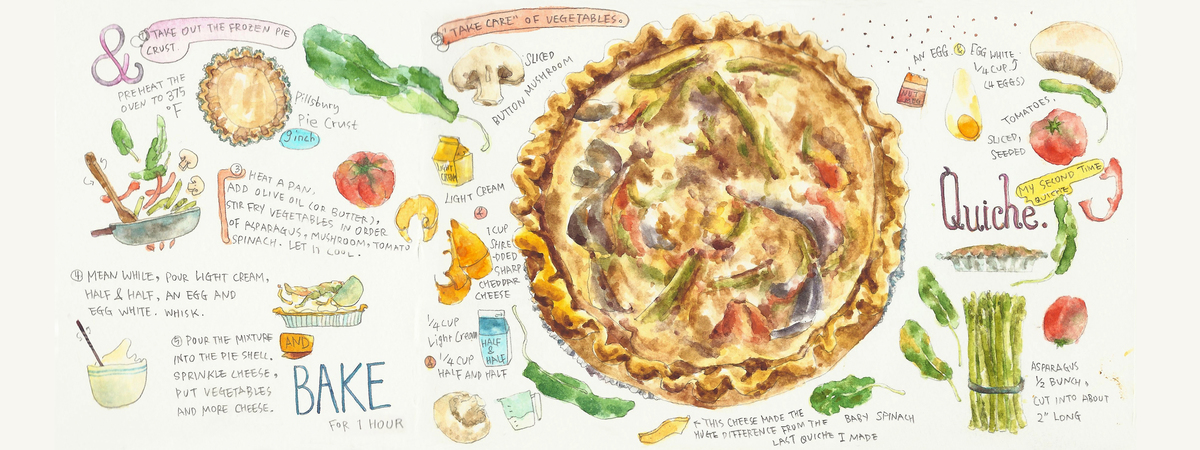 &
① TAKE OUT THE FROZEN PIE
CRUST.
PREHEAT THE
OVEN TO 375
°F
Pillsbury
Pie Crust
9 inch
② "TAKE CARE" OF VEGETABLES.
SLICED
BUTTON MUSHROOM
③ HEAT A PAN,
ADD OLIVE OIL (OR BUTTER),
STIR FRY VEGETABLES IN ORDER
OF ASPARAGUS, MUSHROOM, TOMATO
SPINACH. LET IT COOL.
④ MEAN WHILE, POUR LIGHT CREAM,
HALF & HALF, AN EGG AND
EGG WHITE. WHISK.
⑤ POUR THE MIXTURE
INTO THE PIE SHELL.
SPRINKLE CHEESE,
PUT VEGETABLES
AND MORE CHEESE.
AND
BAKE
FOR 1 HOUR
LIGHT
CREAM
LIGHT CREAM
&
1 CUP
SHRE
-DDED
SHARP
CHEDDAR
CHEESE
1/4 CUP
Light Cream
&
1/4 CUP
HALF AND HALF
HALF
&
HALF
AN EGG & EGG WHITE
1/4 CUP
(4 EGGS)
TOMATOES,
SLICED,
SEEDED
MY SECOND TIME
QUICHE
Quiche.
ASPARAGUS
1/2 BUNCH,
CUT INTO ABOUT
2" LONG
BABY SPINACH
THIS CHEESE MADE THE
HUGE DIFFERENCE FROM THE
LAST QUICHE I MADE